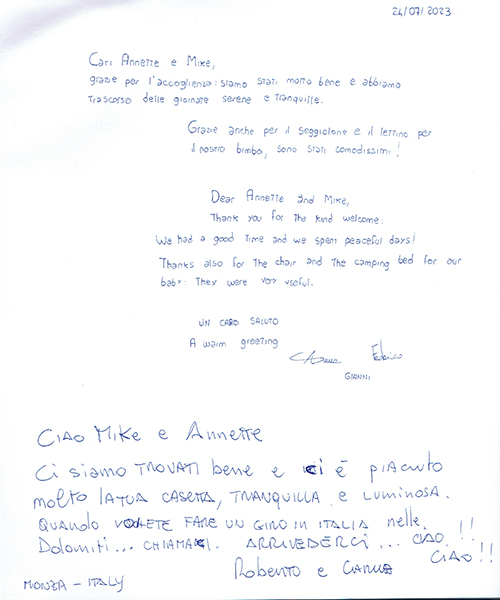 24/07/2023
Cari Annette e Mike,
grazie per l'accoglienza: siamo stati molto bene e abbiamo
trascorso delle giornate serene e tranquille.
Grazie anche per il seggiolone e il lettino per
il nostro bimbo, sono stati comodissimi!
Dear Annette and Mike,
Thank you for the kind welcome.
We had a good time and we spent peaceful days!
Thanks also for the chair and the camping bed for our
baby. They were very useful.
UN CARO SALUTO
A warm greeting
Federico
GIANNI
CIAO MIKE e ANNETTE
Ci siamo TROVATI bene e ci è PIACIUTO
molto LA TUA CASETTA, TRANQUILLA e LUMINOSA.
QUANDO VOLETE FARE UN GIRO IN ITALIA nelle
Dolomiti... CHIAMACI. ARRIVEDERCI... CIAO!!
CIAO!!
Roberto e
MONZA - ITALY